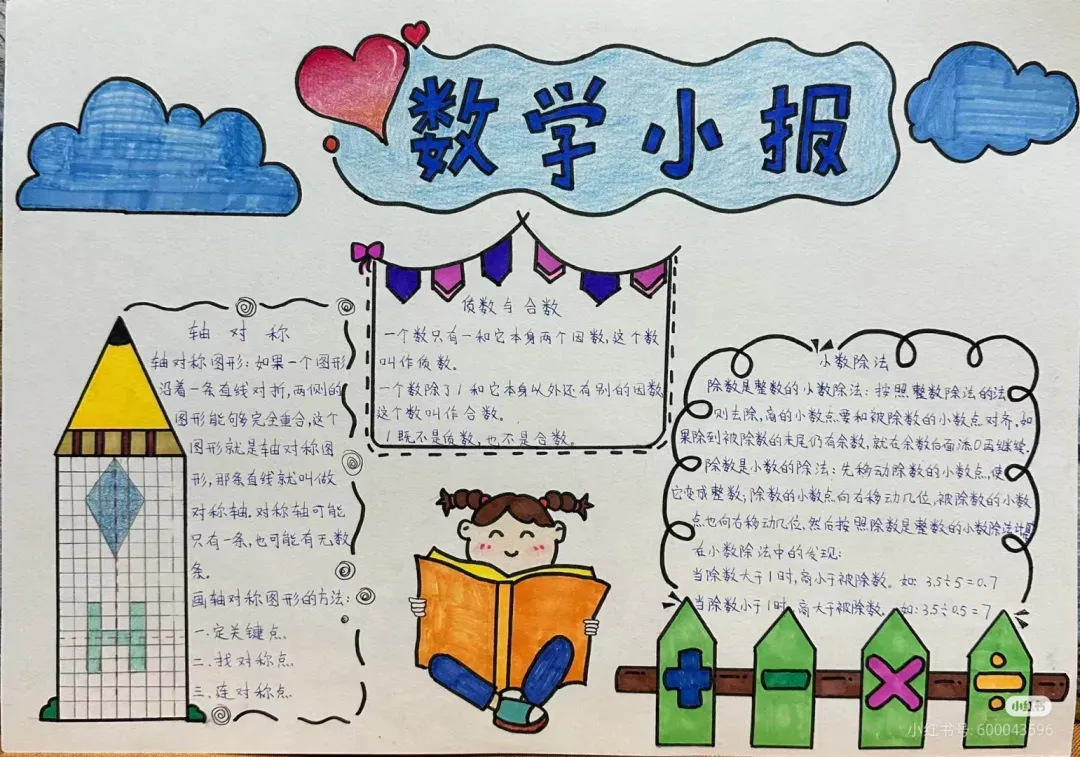 数学小报
轴对称
轴对称图形:如果一个图形
沿着一条直线对折,两侧的
图形能够完全重合,这个
图形就是轴对称图
形,那条直线就叫做
对称轴.对称轴可能
只有一条,也可能有无数
条。
画轴对称图形的方法:
一.定关键点。
二.找对称点.
三.连对称点
质数与合数
一个数只有一和它本身两个因数,这个数
叫作质数。
一个数除了1和它本身以外还有别的因数
这个数叫作合数。
1既不是质数,也不是合数。
小数除法
除数是整数的小数除法:按照整数除法的法
则去除,商的小数点要和被除数的小数点对齐.如
果除到被除数的末尾仍有余数,就在余数后面添0再继续.
除数是小数的除法:先移动除数的小数点,使
它变成整数;除数的小数点向右移动几位,被除数的小数
点也向右移动几位.然后按照除数是整数的小数除法计算
在小数除法中的发现:
当除数大于1时,商小于被除数。如:3.5÷5=0.7
当除数小于1时,商大于被除数。如:3.5÷0.5=7
H
+ - × ÷
小红书
小红书号:600043596